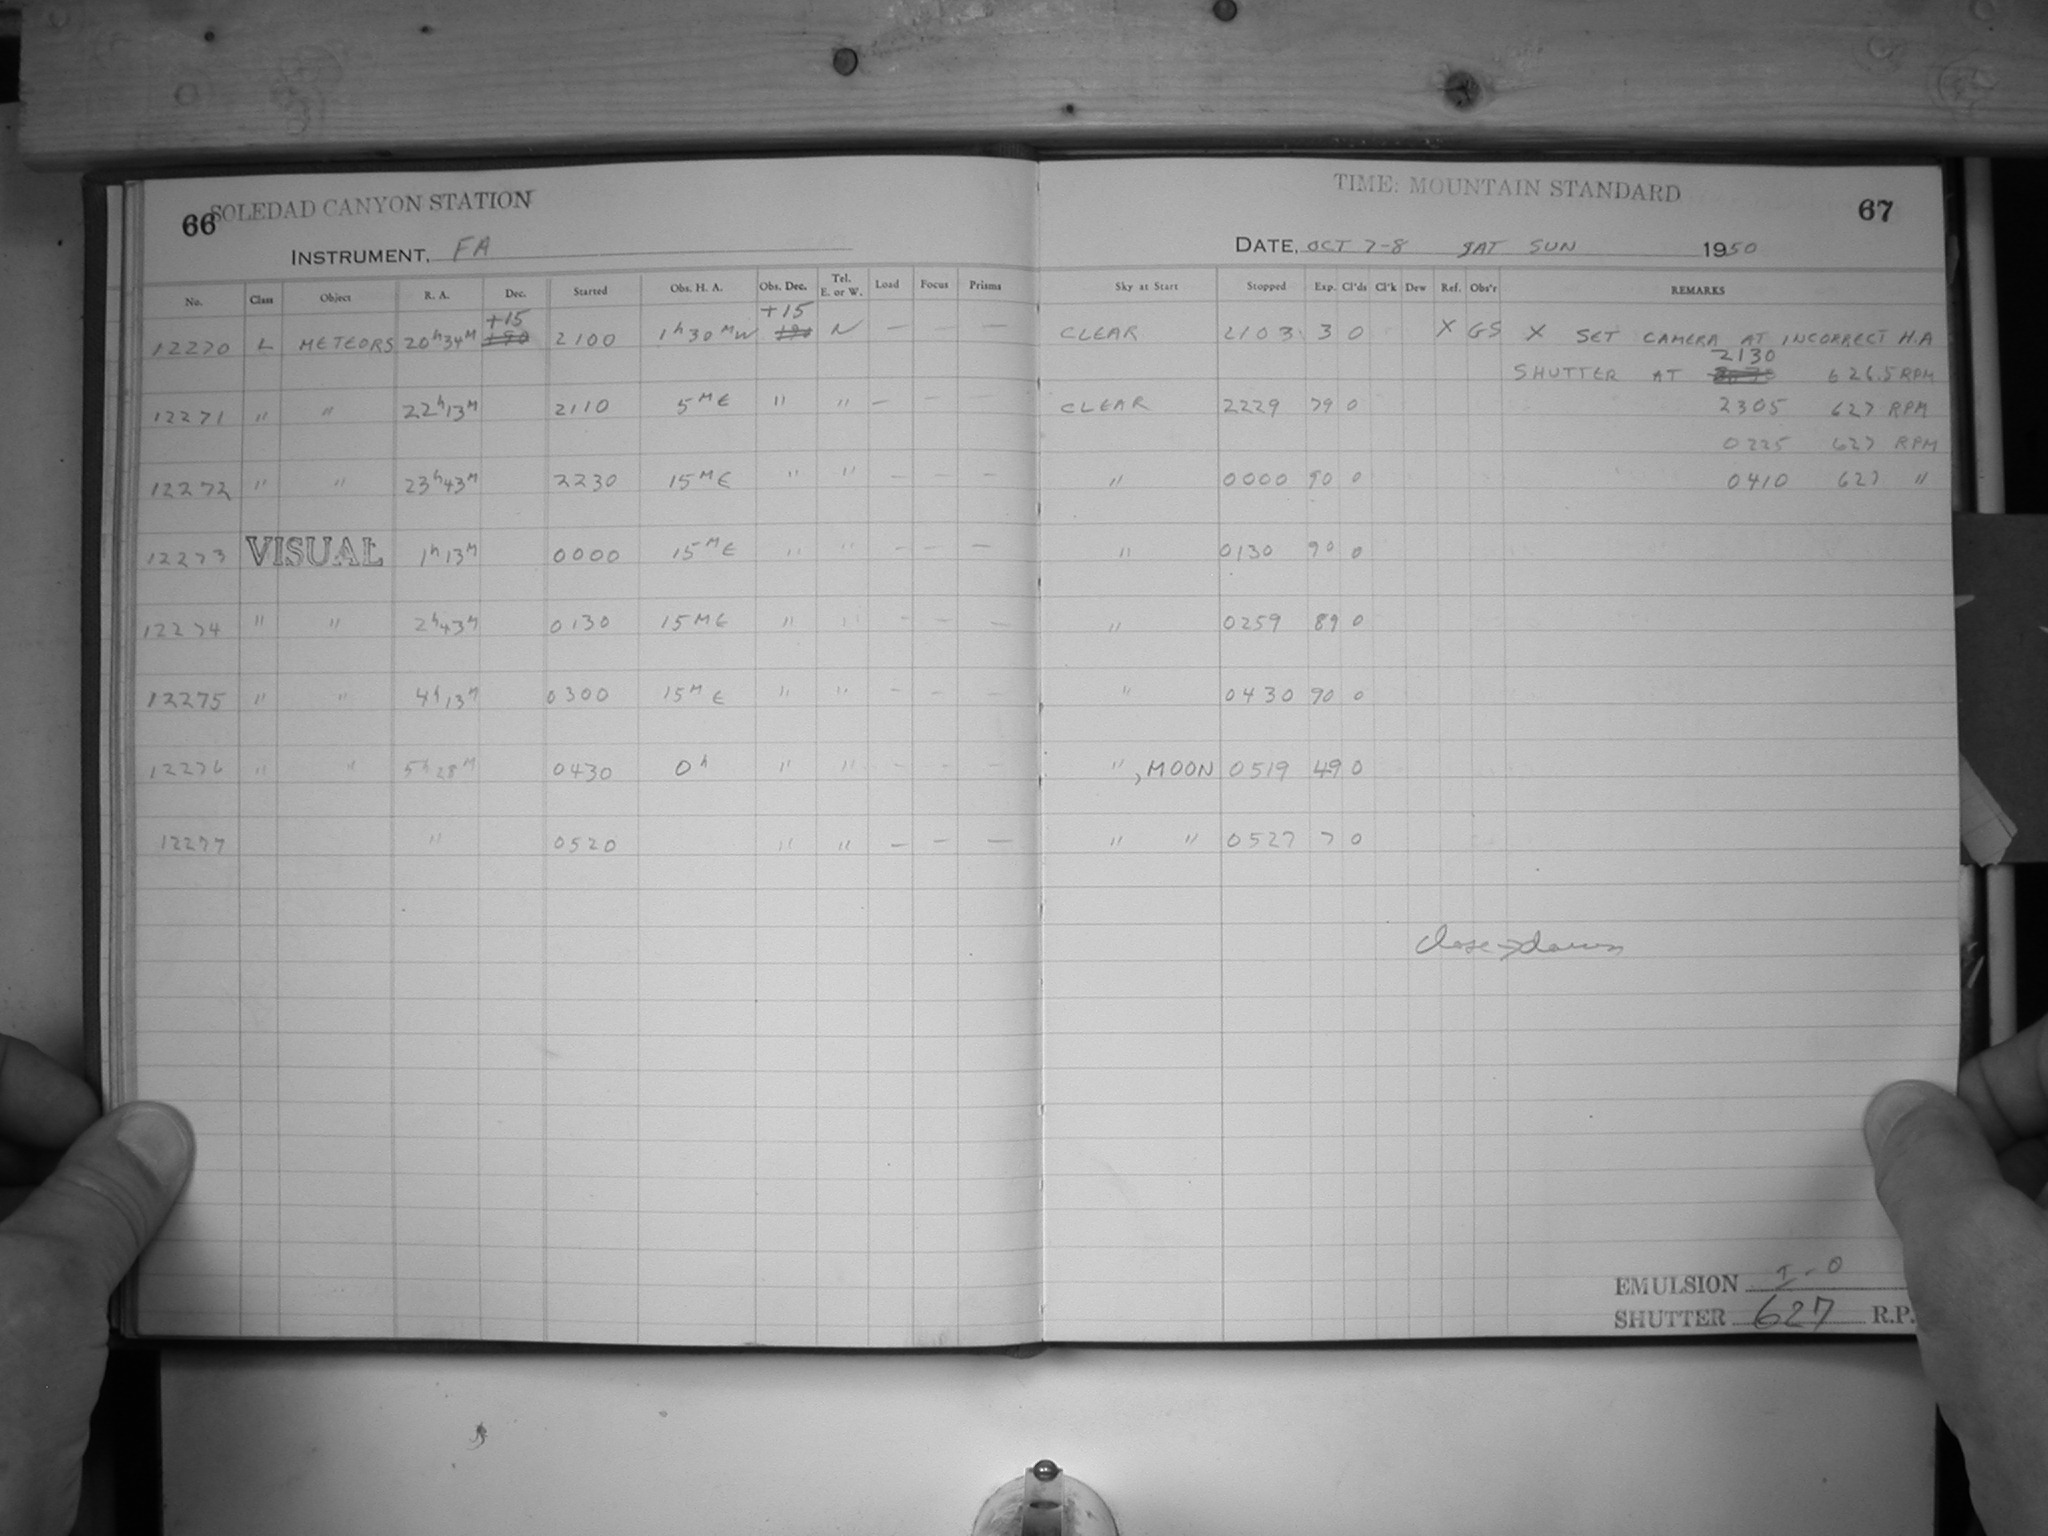 SOLEDAD CANYON STATION
66
INSTRUMENT, FA
No. Class Object R. A. Dec. Started Obs. H. A. Obs. Dec. Tel. E. or W. Load Focus Prisms
+15 +15
12270 L METEORS 20h34M 2100 1h30MW N — —
12271 " " 22h13M 2110 5ME " " — — —
12272 " " 23h43M 2230 15ME " " — — —
12273 VISUAL 1h13M 0000 15ME " " — — —
12274 " " 2h43M 0130 15ME " " — — —
12275 " " 4h13M 0300 15ME " " — — —
12276 " " 5h28M 0430 0h " " — — —
12277 " 0520 " " — — —
TIME: MOUNTAIN STANDARD
67
DATE, OCT 7-8 SAT SUN 1950
Sky at Start Stopped Exp. Cl'ds Cl'k Dew Ref. Obs'r REMARKS
CLEAR 2103 3 0 X GS X SET CAMERA AT INCORRECT H.A
SHUTTER AT 2130 626.5 RPM
CLEAR 2229 79 0 2305 627 RPM
0225 627 RPM
" 0000 90 0 0410 627 "
" 0130 90 0
" 0259 89 0
" 0430 90 0
", MOON 0519 49 0
" " 0527 7 0
close down
EMULSION I-O
SHUTTER 627 R.P.